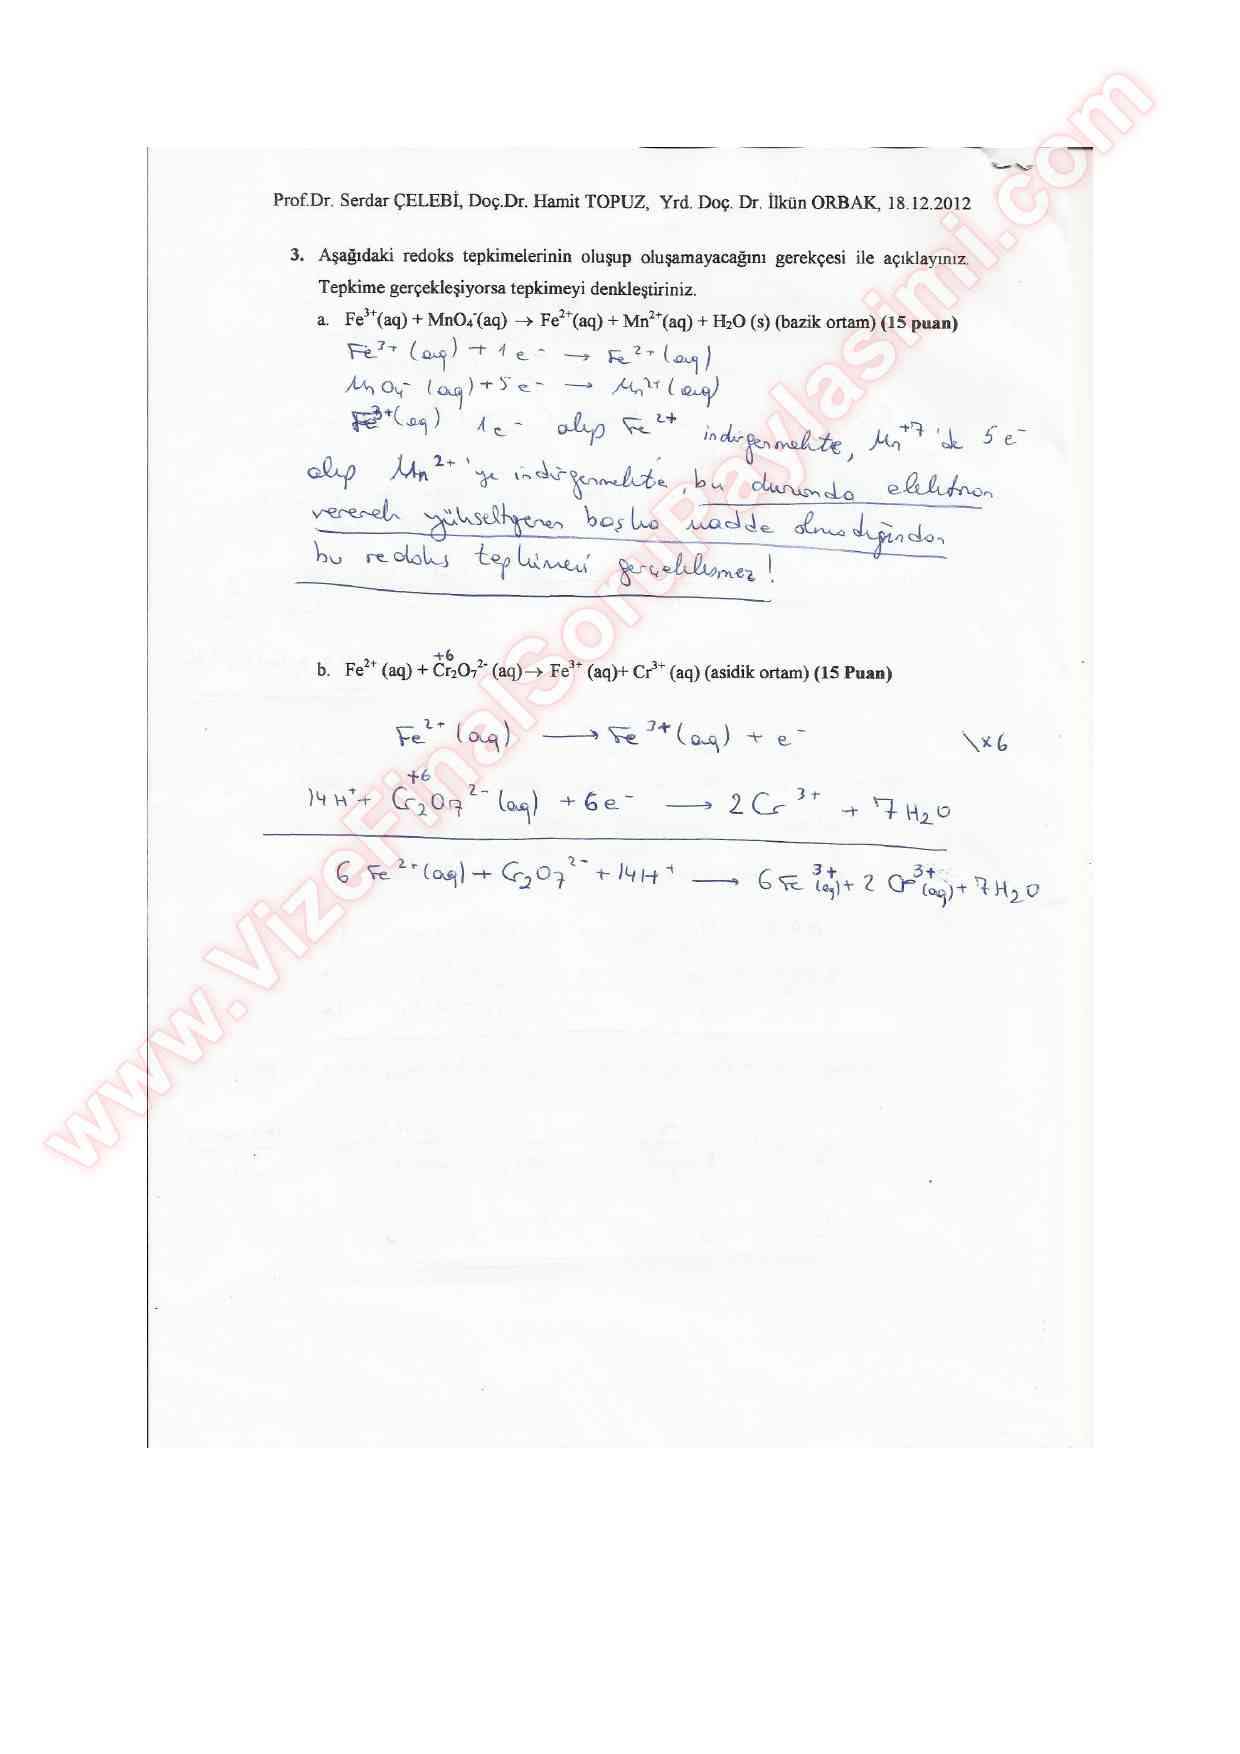 Prof.Dr. Serdar ÇELEBİ, Doç.Dr. Hamit TOPUZ, Yrd. Doç. Dr. İlkün ORBAK, 18.12.2012
3. Aşağıdaki redoks tepkimelerinin oluşup oluşamayacağını gerekçesi ile açıklayınız.
Tepkime gerçekleşiyorsa tepkimeyi denkleştiriniz.
a. Fe³⁺(aq) + MnO₄⁻(aq) → Fe²⁺(aq) + Mn²⁺(aq) + H₂O (s) (bazik ortam) (15 puan)
Fe³⁺ (aq) + 1e⁻ → Fe²⁺ (aq)
MnO₄⁻ (aq) + 5e⁻ → Mn²⁺ (aq)
Fe³⁺(aq) 1e⁻ alıp Fe²⁺ indirgenmekte, Mn⁺⁷'de 5e⁻
alıp Mn²⁺'ye indirgenmekte, bu durumda elektron
vererek yükseltgenen başka madde olmadığından
bu redoks tepkimesi gerçekleşmez!
b. Fe²⁺ (aq) + Cr₂O₇²⁻ (aq) → Fe³⁺ (aq)+ Cr³⁺ (aq) (asidik ortam) (15 Puan)
+6
Fe²⁺ (aq) → Fe³⁺ (aq) + e⁻ \x6
+6
14H⁺ + Cr₂O₇²⁻ (aq) + 6e⁻ → 2Cr³⁺ + 7H₂O
6Fe²⁺(aq) + Cr₂O₇²⁻ + 14H⁺ → 6Fe³⁺(aq) + 2Cr³⁺(aq) + 7H₂O
www.VizeFinalSoruPaylasimi.com